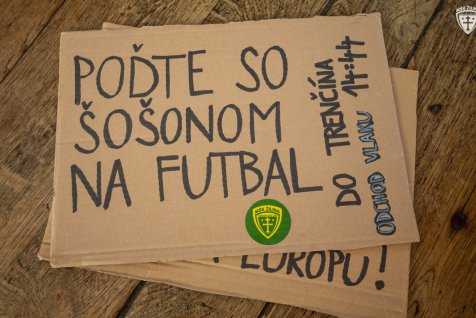 POĎTE SO
ŠOŠONOM
NA FUTBAL
DO TRENČÍNA
14:44
ODCHOD VLAKU
MŠK ŽILINA
EUROPU!
MŠK ŽILINA